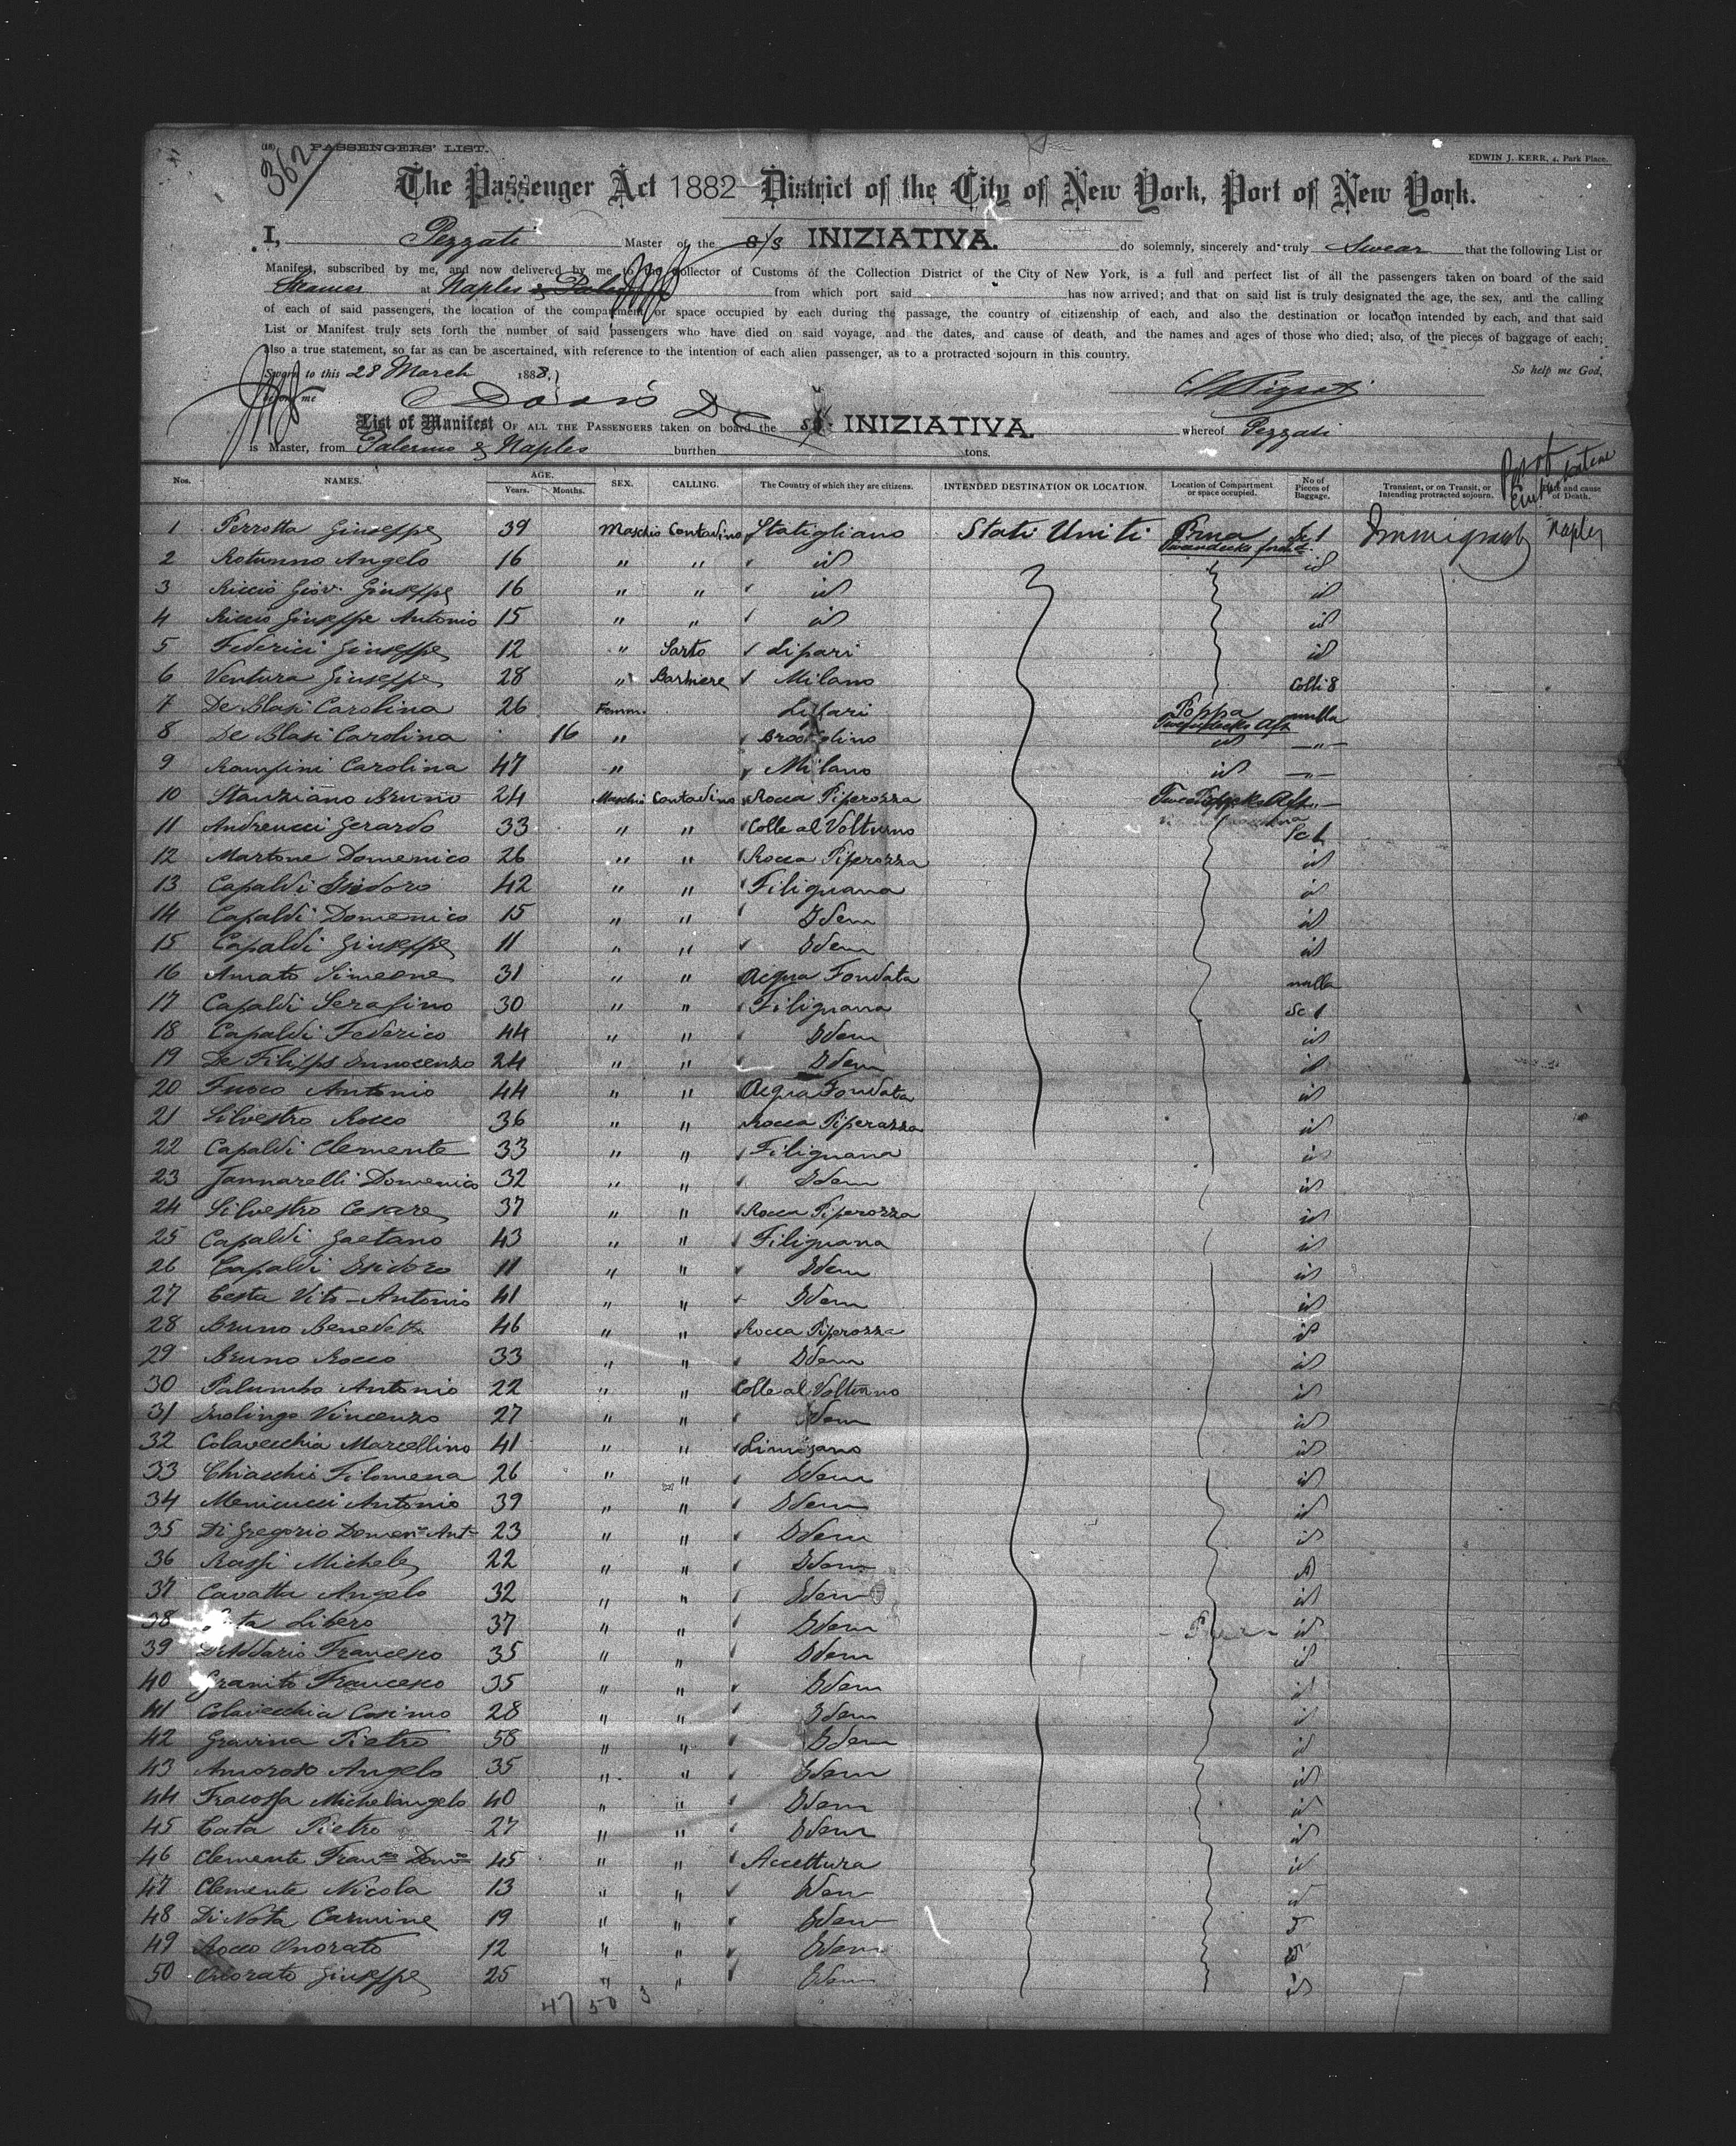 (18) PASSENGERS' LIST.
362
EDWIN J. KERR, 4, Park Place.
The Passenger Act 1882 District of the City of New York, Port of New York.
I, Pezzati Master of the S/S INIZIATIVA. do solemnly, sincerely and truly Swear that the following List or
Manifest, subscribed by me, and now delivered by me to the Collector of Customs of the Collection District of the City of New York, is a full and perfect list of all the passengers taken on board of the said
Steamer at Naples from which port said has now arrived; and that on said list is truly designated the age, the sex, and the calling
of each of said passengers, the location of the compartment or space occupied by each during the passage, the country of citizenship of each, and also the destination or location intended by each, and that said
List or Manifest truly sets forth the number of said passengers who have died on said voyage, and the dates, and cause of death, and the names and ages of those who died; also, of the pieces of baggage of each;
also a true statement, so far as can be ascertained, with reference to the intention of each alien passenger, as to a protracted sojourn in this country.
Sworn to this 28 March 1888, So help me God,
before me
List or Manifest OF ALL THE PASSENGERS taken on board the INIZIATIVA. whereof Pezzati
is Master, from Palermo & Naples burthen tons.
Nos. NAMES. AGE. Years. Months. SEX. CALLING. The Country of which they are citizens. INTENDED DESTINATION OR LOCATION. Location of Compartment or space occupied. No of Pieces of Baggage. Transient, or on Transit, or Intending protracted sojourn. Date and cause of Death.
1 Perrotta Giuseppe 39 Maschio Contadino Statigliano Stati Uniti Prua Sc 1 Immigrant Naples
2 Rotunno Angelo 16 " " id id
3 Riccio Giov. Giuseppe 16 " " id id
4 Riccio Giuseppe Antonio 15 " " id id
5 Federici Giuseppe 12 " Sarto Lipari id
6 Ventura Giuseppe 28 " Barbiere Milano Colli 8
7 De Blasi Carolina 26 Femm. Lipari Poppa nulla
8 De Blasi Carolina 16 " id "
9 Ranfini Carolina 47 " Milano id "
10 Stanziano Bruno 24 Maschio Contadino Rocca Piperozza "
11 Andreucci Gerardo 33 " " Colle al Volturno Sc 1
12 Martone Domenico 26 " " Rocca Piperozza id
13 Capaldi Isidoro 42 " " Filignana id
14 Capaldi Domenico 15 " " Idem id
15 Capaldi Giuseppe 11 " " Idem id
16 Amato Simeone 31 " " Acqua Fondata nulla
17 Capaldi Serafino 30 " " Filignana Sc 1
18 Capaldi Federico 44 " " Idem id
19 De Filipps Innocenzo 24 " " Idem id
20 Fuoco Antonio 44 " " Acqua Fondata id
21 Silvestro Rocco 36 " " Rocca Piperazza id
22 Capaldi Clemente 33 " " Filignana id
23 Jannarelli Domenico 32 " " Idem id
24 Silvestro Cesare 37 " " Rocca Piperozza id
25 Capaldi Gaetano 43 " " Filignana id
26 Capaldi Isidoro 11 " " Idem id
27 Testa Vito-Antonio 41 " " Idem id
28 Bruno Benedetto 46 " " Rocca Piperozza id
29 Bruno Rocco 33 " " Idem id
30 Palumbo Antonio 22 " " Colle al Volturno id
31 Vincenzo 27 " " Idem id
32 Colavecchia Marcellino 41 " " Limosano id
33 Chiacchio Filomena 26 " " Idem id
34 Menicucci Antonio 39 " " Idem id
35 Di Gregorio Domenco Ant 23 " " Idem id
36 Raffi Michele 22 " " Idem id
37 Cavatta Angelo 32 " " Idem id
38 Libero 37 " " Idem id
39 D'Addario Francesco 35 " " Idem id
40 Granito Francesco 35 " " Idem id
41 Colavecchia Cosimo 28 " " Idem id
42 Gravina Pietro 58 " " Idem id
43 Amoroso Angelo 35 " " Idem id
44 Fracossa Michelangelo 40 " " Idem id
45 Cata Pietro 27 " " Idem id
46 Clemente Franco Domco 45 " " Accettura id
47 Clemente Nicola 13 " " Idem id
48 Di Nota Carmine 19 " " Idem
49 Rocco Onorato 12 " " Idem id
50 Onorato Giuseppe 25 " " Idem id
47 50 3